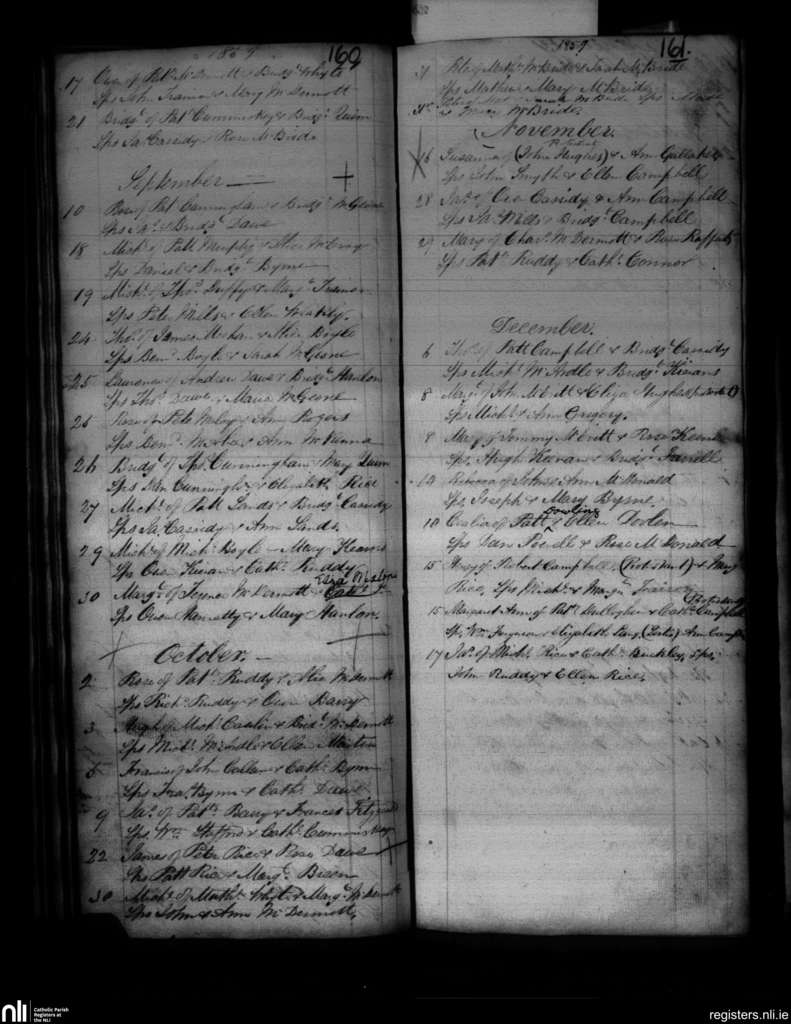 1859. 160
17 Owen of Patt McDermott & Bridgt Whyte
Sps John Trainor & Mary McDermott
21 Bridgt of Patt Cumminskey & Bridgt Quinn
Sps Ja. Cassidy & Rose McBride
September
10 Rose of Pat Cunningham & Bridgt McGeone
Sps Jas. & Bridgt Dawe
18 Mich of Patt Murphy & Alice McEvoy
Sps Daniel & Bridgt Byrne
19 Michl of Thos. Duffy & Margt Trainor
Sps Peter Mills & Ellen
24 Thos. of James & Alice Boyle
Sps Benj. Boyle & Sarah McGeone
25 Laurence of Andrew Dawe & Bridgt Hanlon
Sps Thos. Dawe & Maria McGeone
25 Rose of Peter & Ann Rogers
Sps & Ann McKenna
26 Bridgt of Ths. Cunningham & Mary Quinn
Sps Dan Cunningham & Elizabeth Rice
27 Michl of Patt Sands & Bridgt Cassidy
Sps Ja. Cassidy & Ann Sands.
29 Michl of Michl Boyle & Mary Kearns
Sps Owen Kieran & Cath. Ruddy
30 Margt of Terence McDermott &
Sps Owen & Mary Hanlon.
October.
2 Rose of Patk Ruddy & Alice McDermott
Sps Richd Ruddy & Owen Barry
3 Hugh of Michl & Bridt McDermott
Sps Michl McArdle & Ellen Martin
5 Francis of John Callan & Cath. Byrne
Sps Fras. Byrne & Cath. Dawe
9 of Patk Barry & Frances
Sps Wm Stafford & Cath. Cumminskey
22 James of Peter Rice & Rose Dawe
Sps Patt Rice & Margt Breen
30 Michl of Matth. Whyte & Margt McDermott
Sps John & Ann McDermott,
1859 161.
31 Peter of Matthw McBride & Sarah McBride
Sps Mathew & Mary McBride
McBride Sps
& Mary McBride.
November.
Protestant
16 Susanna of (John Hughes) & Ann Gallaher
Sps John Smyth & Ellen Campbell
28 Jas. of Owen Cassidy & Ann Campbell
Sps Ja. Mills & Bridgt Campbell
29 Mary of Chas. McDermott & Rose Rafferty
Sps Patk Ruddy & Cath. Connor
December.
6 Thos. of Patt Campbell & Bridgt Cassidy
Sps Michl McArdle & Bridgt Kierans
8 Margt of John & Eliza Hughes
Sps Michl & Ann Gregory.
8 Mary of Tommy & Rose
Sps. Hugh Kieran & Bridgt Farrell
10 Rebecca of & Ann McDonald
Sps. Joseph & Mary Byrne.
Dowling
10 of Patt & Ellen Dowlen
Sps Dan & Rose McDonald
15 of Robert Campbell, (Protestant) & Mary
Rice, Sps Michl & Margt Trainor
(Protestant)
15 Margaret Ann of Patk & Cath. Campbell
Sps. Wm Ferguson & Elizabeth Ann Campbell
17 Jas. of Michl Rice & Cath. Binckley, Sps.
John Ruddy & Ellen Rice.
nli Catholic Parish
Registers at
the NLI
registers.nli.ie